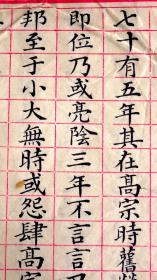 七十有五年其在髙宗時舊
即位乃或亮陰三年不言言
邦至于小大無時或怨肆髙宗